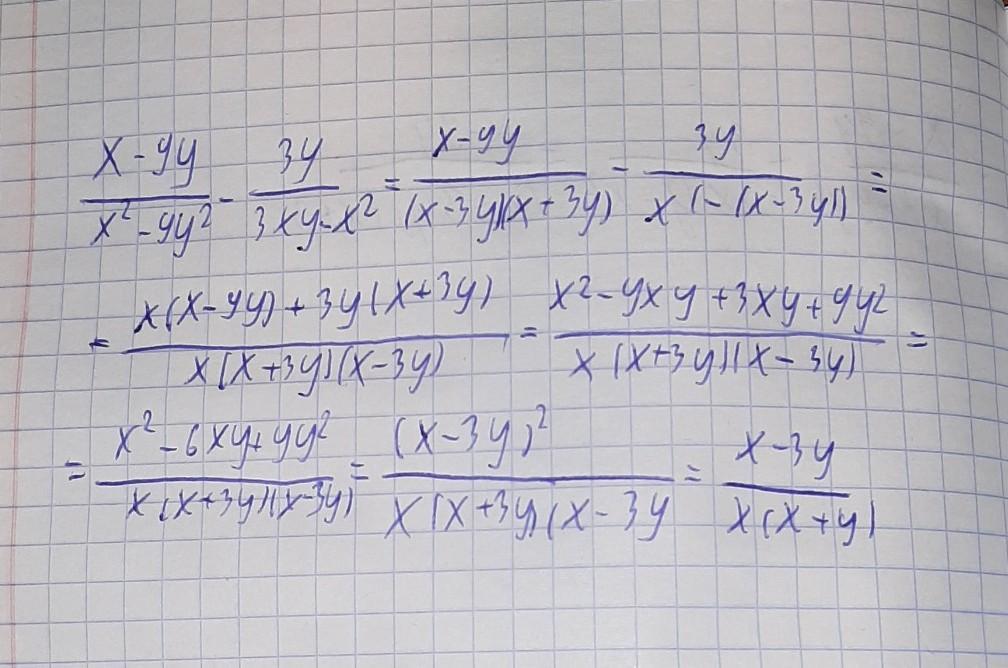 (x-9y)/(x²-9y²) - 3y/(3xy-x²) = (x-9y)/((x-3y)(x+3y)) - 3y/(x(-(x-3y))) =
= (x(x-9y)+3y(x+3y))/(x(x+3y)(x-3y)) = (x²-9xy+3xy+9y²)/(x(x+3y)(x-3y)) =
= (x²-6xy+9y²)/(x(x+3y)(x-3y)) = (x-3y)²/(x(x+3y)(x-3y) = (x-3y)/(x(x+y))